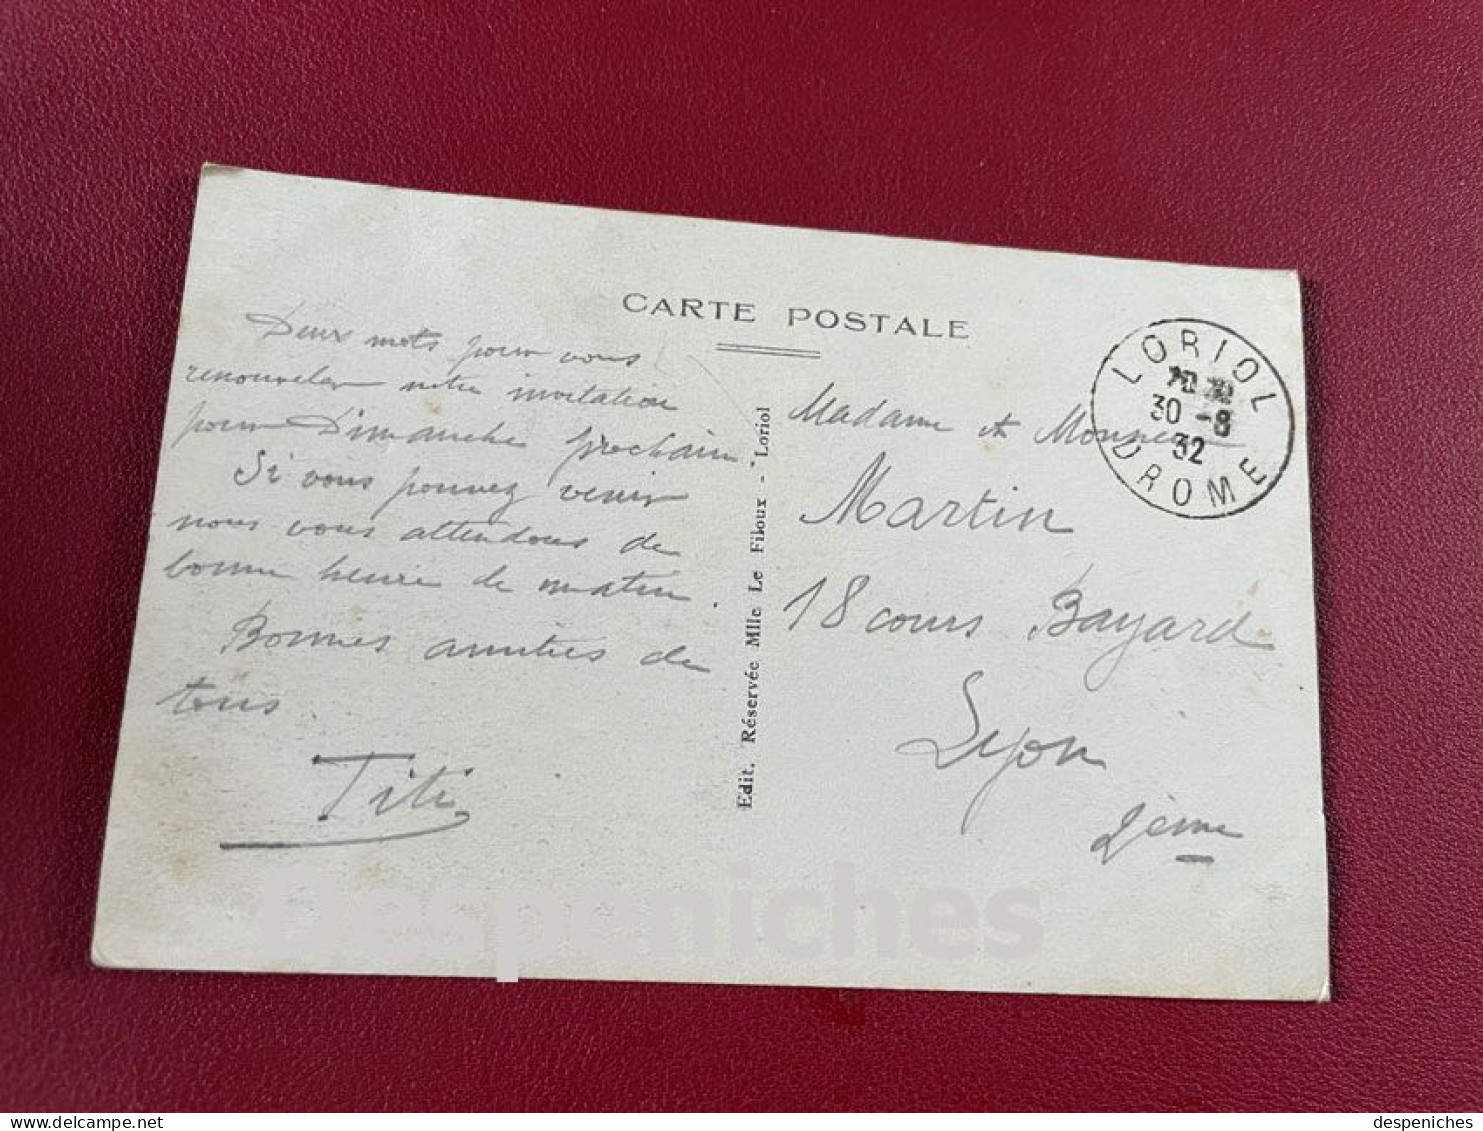 CARTE POSTALE
Deux mots pour vous
renouveler notre invitation
pour Dimanche prochain.
Si vous pouvez venir
nous vous attendons de
bonne heure le matin.
Bonnes amitiés de
tous
Titi
Edit. Réservée Mlle Le Filoux - Loriol
Madame et Monsieur
Martin
18 cours Bayard
Lyon
2ème
LORIOL
30 -8
32
DROME
Despeniches
delcampe.net
despeniches